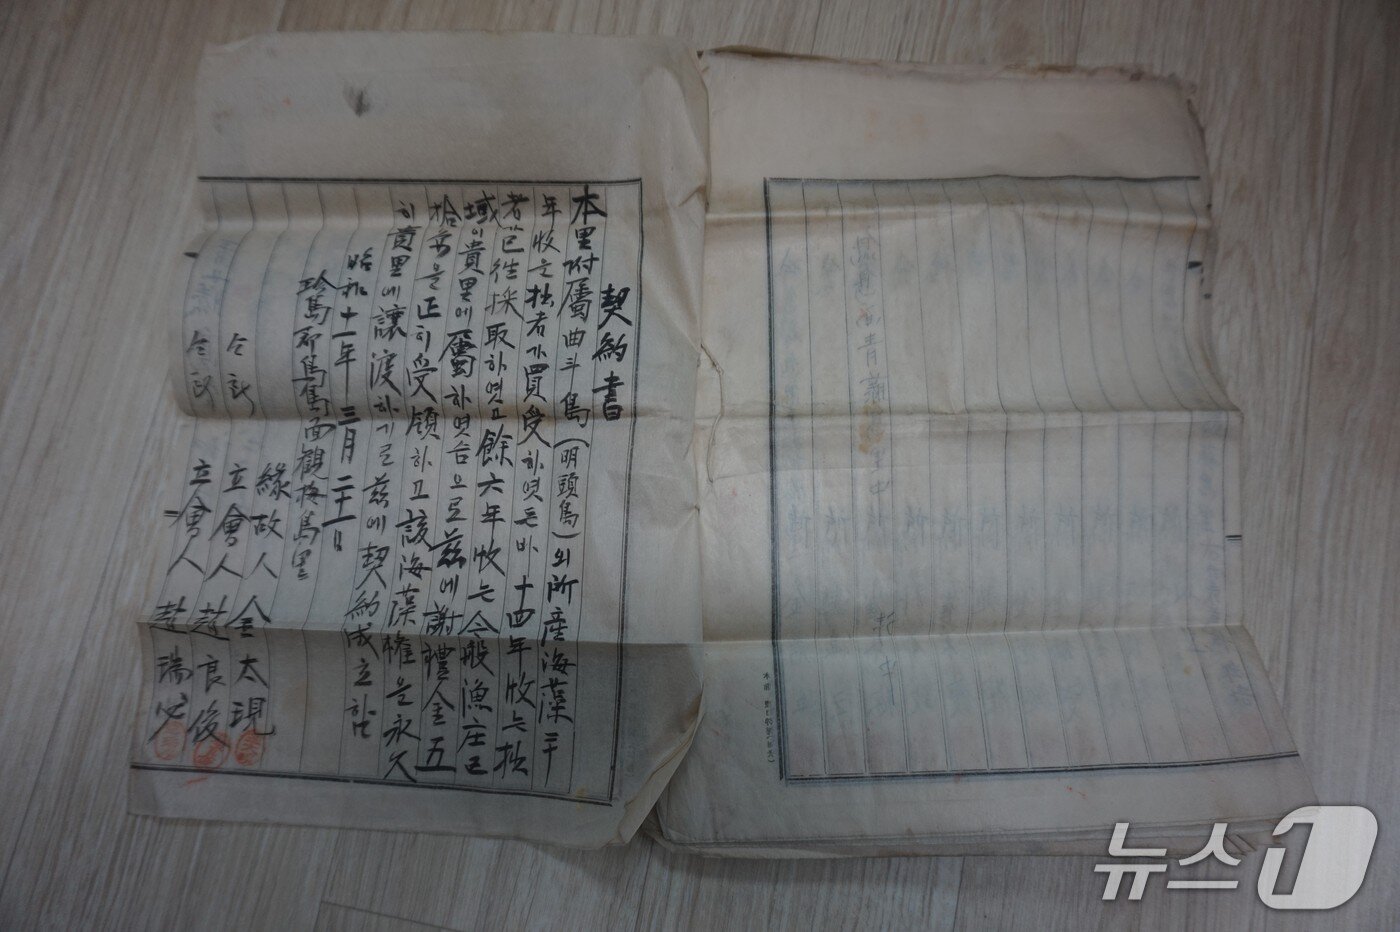 契約書
本里附屬曲斗島(明頭島)의所産海藻二十
年收은拙者가買受하엿든바十四年收는拙
者가已往採取하엿고餘六年收는今般漁庄区
域이貴里에屬하엿슴으로玆에謝禮金五
拾 을正히受領하고該海藻權을永久
히貴里에讓渡하기로玆에契約成立함
昭和十一年三月二十一日
珍島郡鳥島面觀梅島里
緣故人 金太現
仝 立會人 趙良俊
仝 立會人 趙瑞
뉴스1